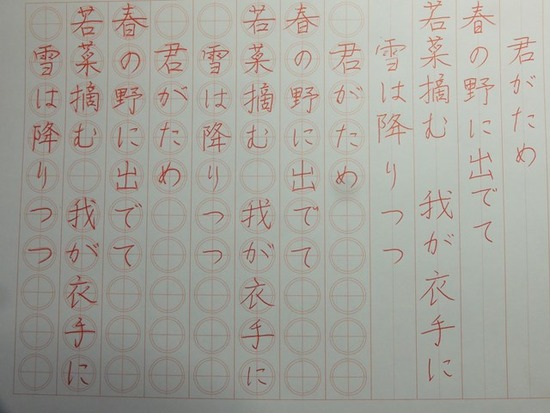 君がため
春の野に出でて
若菜摘む 我が衣手に
雪は降りつつ
君がため
春の野に出でて
若菜摘む 我が衣手に
雪は降りつつ
君がため
春の野に出でて
若菜摘む 我が衣手に
雪は降りつつ